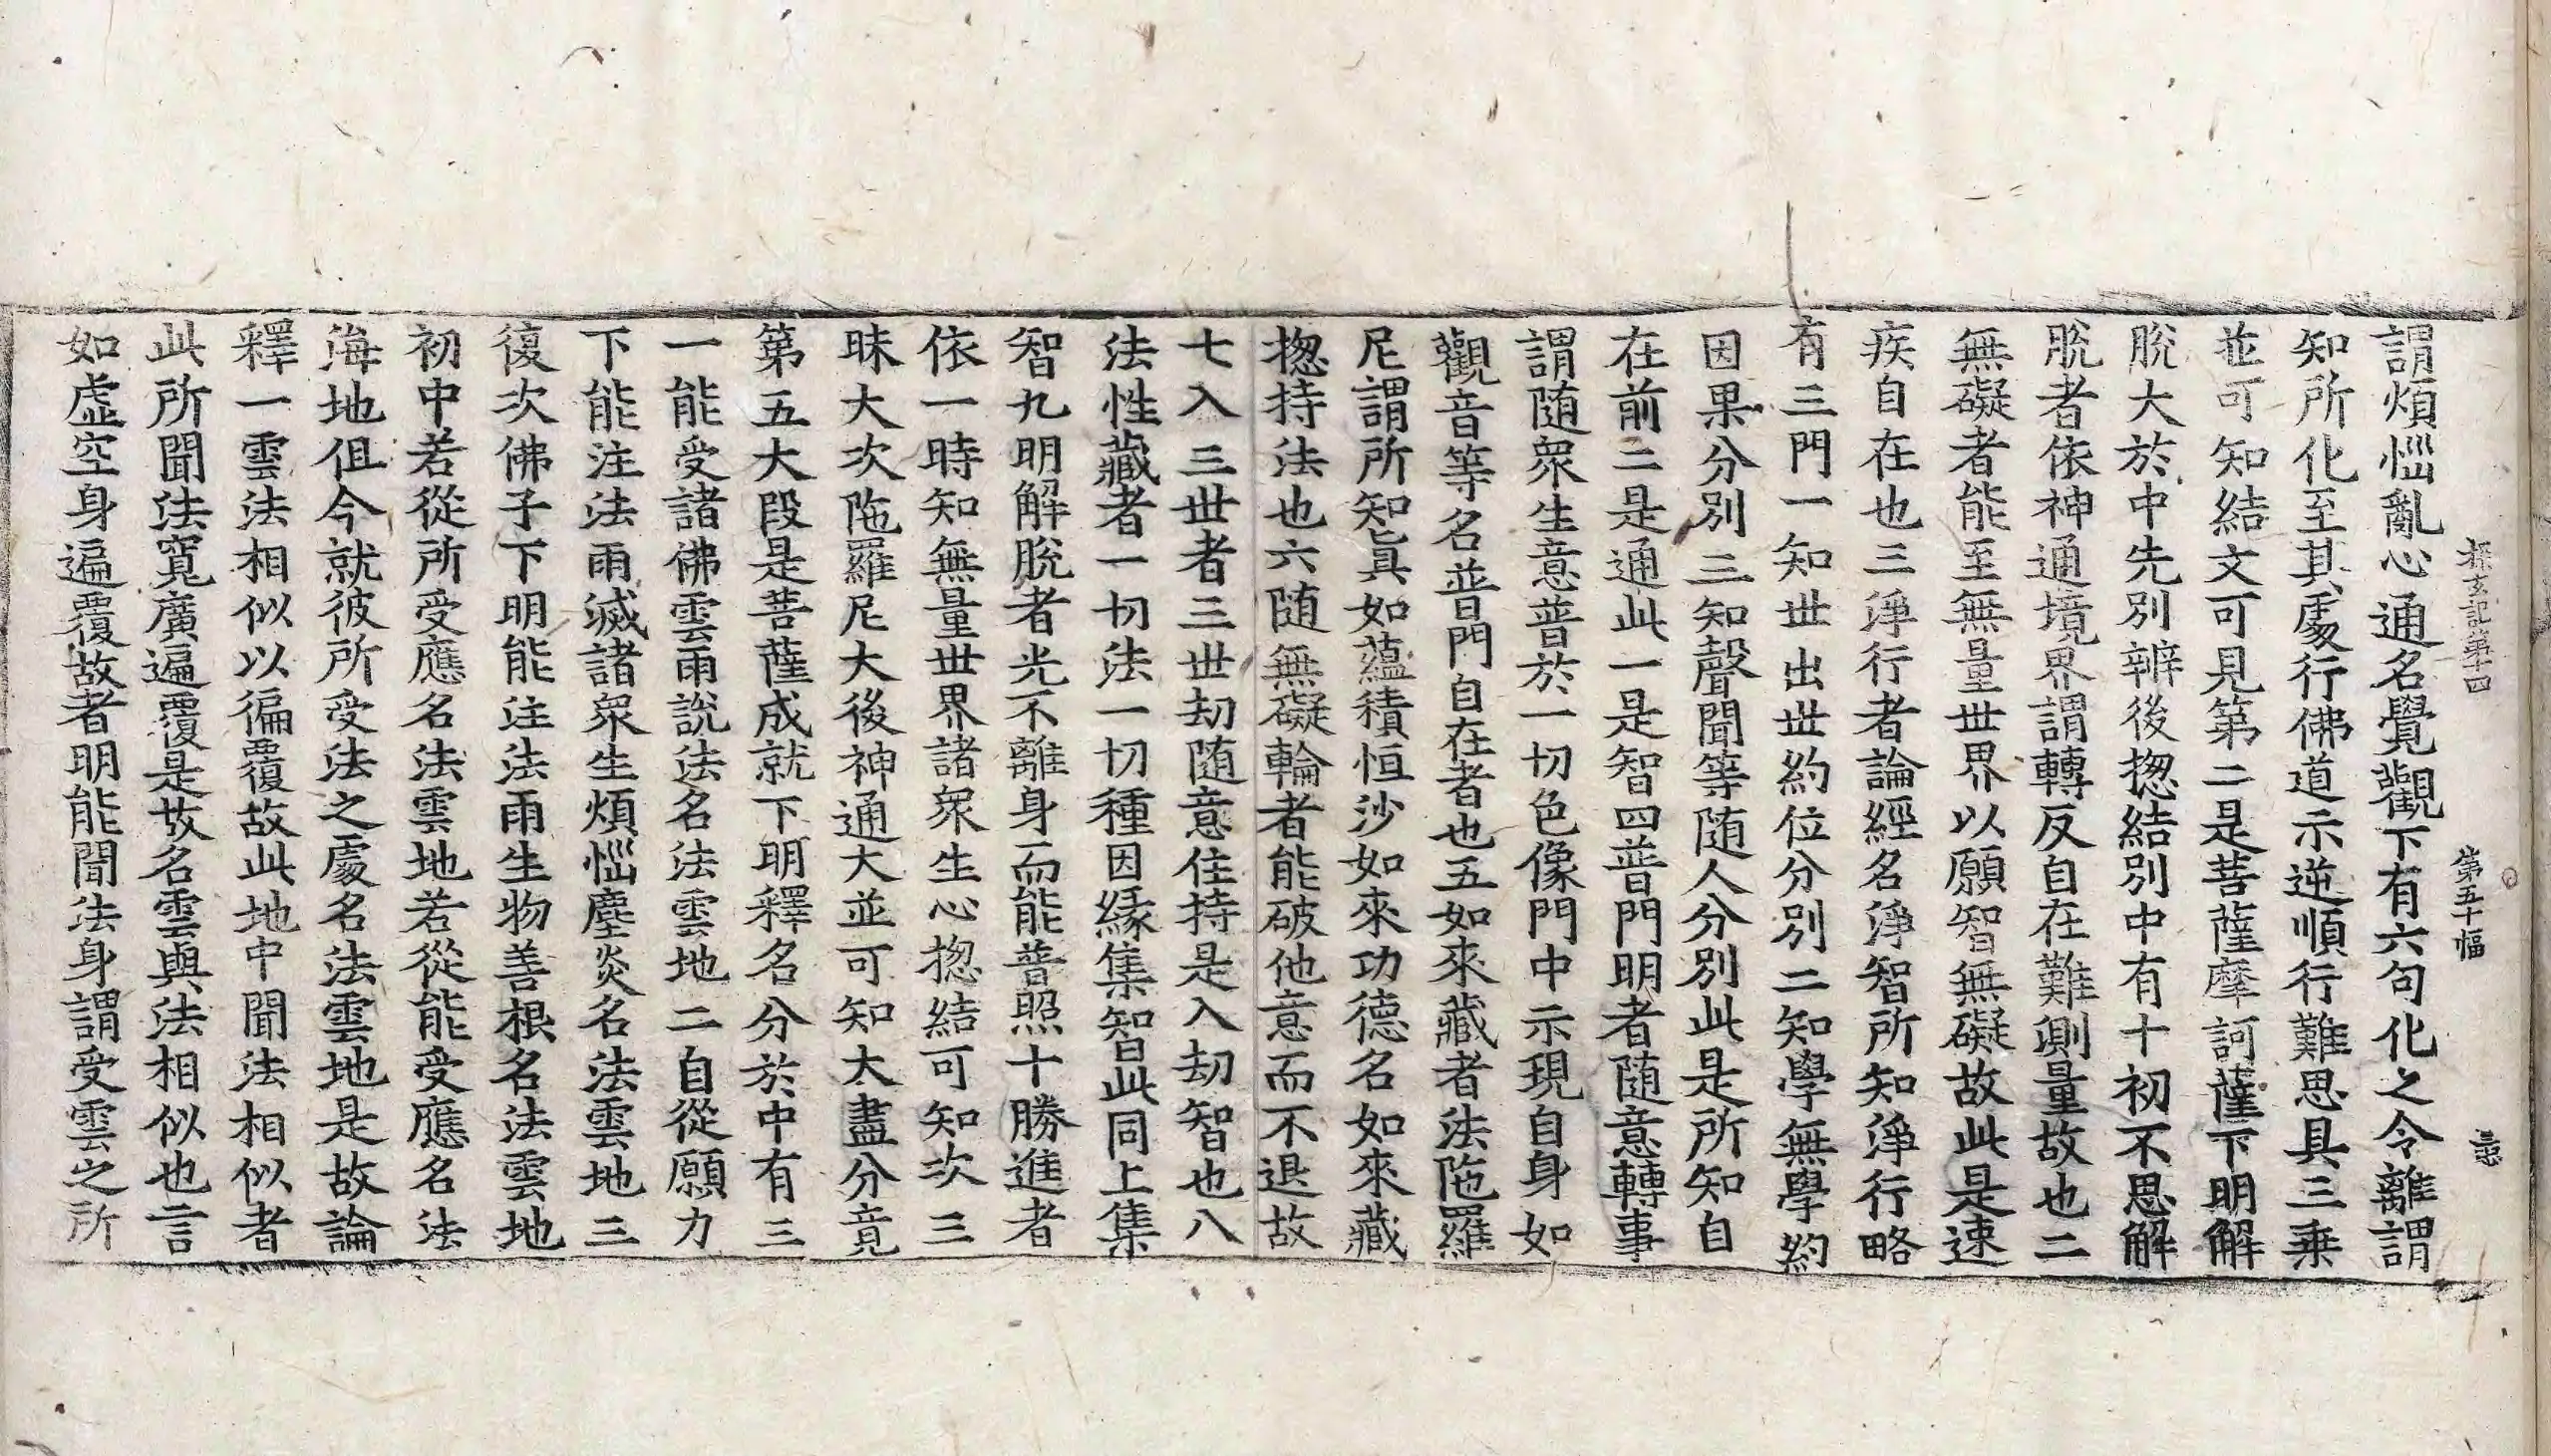 探玄記第十四 第五十幅
謂煩惱亂心通名覺觀下有六句化之令離謂
知所化至其處行佛道示逆順行難思具三乗
並可知結文可見第二是菩薩摩訶薩下明解
脫大於中先別辨後揔結別中有十初不思解
脫者依神通境界謂轉反自在難測量故也二
無礙者能至無量世界以願智無礙故此是速
疾自在也三淨行者論經名淨智所知淨行略
有三門一知世出世約位分別二知學無學約
因果分別三知聲聞等随人分別此是所知自
在前二是通此一是智四普門明者随意轉事
謂随衆生意普於一切色像門中示現自身如
觀音等名普門自在者也五如來藏者法陁羅
尼謂所知眞如蘊積恒沙如來功德名如來藏
揔持法也六随無礙輪者能破他意而不退故
七入三世者三世劫随意住持是入劫智也八
法性藏者一切法一切種因緣集智此同上集
智九明解脫者光不離身而能普照十勝進者
依一時知無量世界諸衆生心揔結可知次三
昧大次陁羅尼大後神通大並可知大盡分竟
第五大段是菩薩成就下明釋名分於中有三
一能受諸佛雲雨說法名法雲地二自從願力
下能注法雨滅諸衆生煩惱塵炎名法雲地三
復次佛子下明能注法雨生物善根名法雲地
初中若從所受應名法雲地若從能受應名法
海地但今就彼所受法之處名法雲地是故論
釋一雲法相似以徧覆故此地中聞法相似者
此所聞法寬廣遍覆是故名雲與法相似也言
如虛空身遍覆故者明能聞法身謂受雲之所